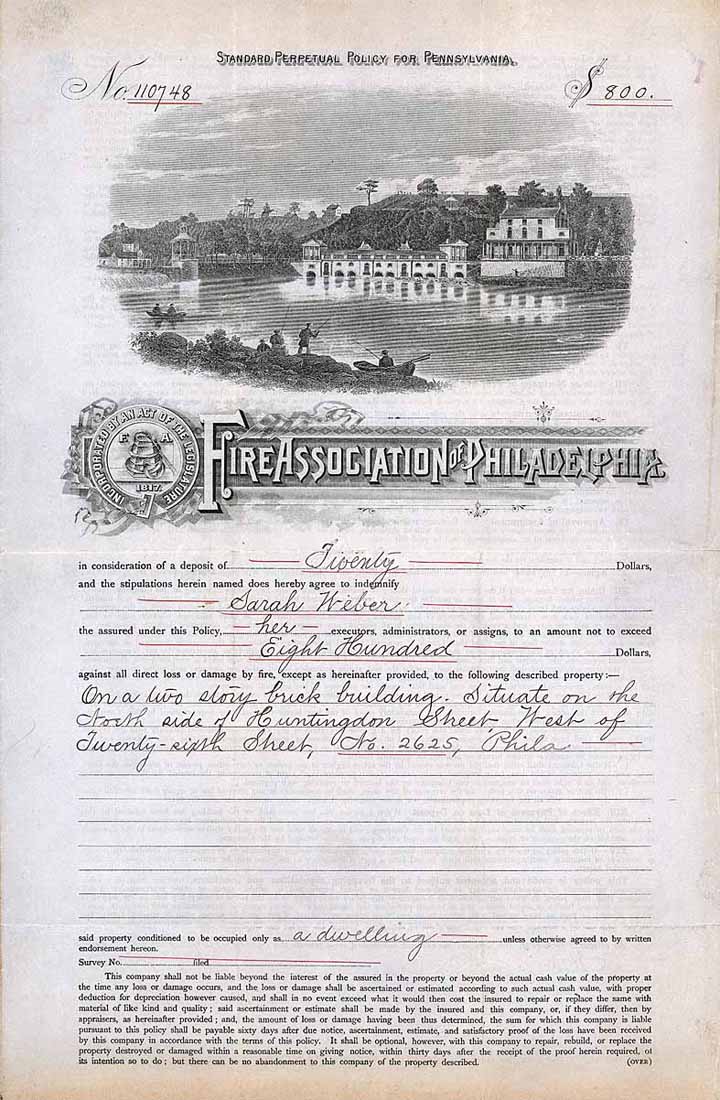 STANDARD PERPETUAL POLICY FOR PENNSYLVANIA.
No. 110748 $ 800.
INCORPORATED BY AN ACT OF THE LEGISLATURE
F A
1817.
FIRE ASSOCIATION OF PHILADELPHIA
in consideration of a deposit of Twenty Dollars,
and the stipulations herein named does hereby agree to indemnify
Sarah Weber
the assured under this Policy, her executors, administrators, or assigns, to an amount not to exceed
Eight Hundred Dollars,
against all direct loss or damage by fire, except as hereinafter provided, to the following described property:—
On a two story brick building. Situate on the
North side of Huntingdon Street, West of
Twenty-sixth Street, No. 2625, Phila
said property conditioned to be occupied only as a dwelling unless otherwise agreed to by written
endorsement hereon.
Survey No. filed
This company shall not be liable beyond the interest of the assured in the property or beyond the actual cash value of the property at
the time any loss or damage occurs, and the loss or damage shall be ascertained or estimated according to such actual cash value, with proper
deduction for depreciation however caused, and shall in no event exceed what it would then cost the insured to repair or replace the same with
material of like kind and quality; said ascertainment or estimate shall be made by the insured and this company, or, if they differ, then by
appraisers, as hereinafter provided; and, the amount of loss or damage having been thus determined, the sum for which this company is liable
pursuant to this policy shall be payable sixty days after due notice, ascertainment, estimate, and satisfactory proof of the loss have been received
by this company in accordance with the terms of this policy. It shall be optional, however, with this company to repair, rebuild, or replace the
property destroyed or damaged within a reasonable time on giving notice, within thirty days after the receipt of the proof herein required, of
its intention so to do; but there can be no abandonment to this company of the property described. (OVER)